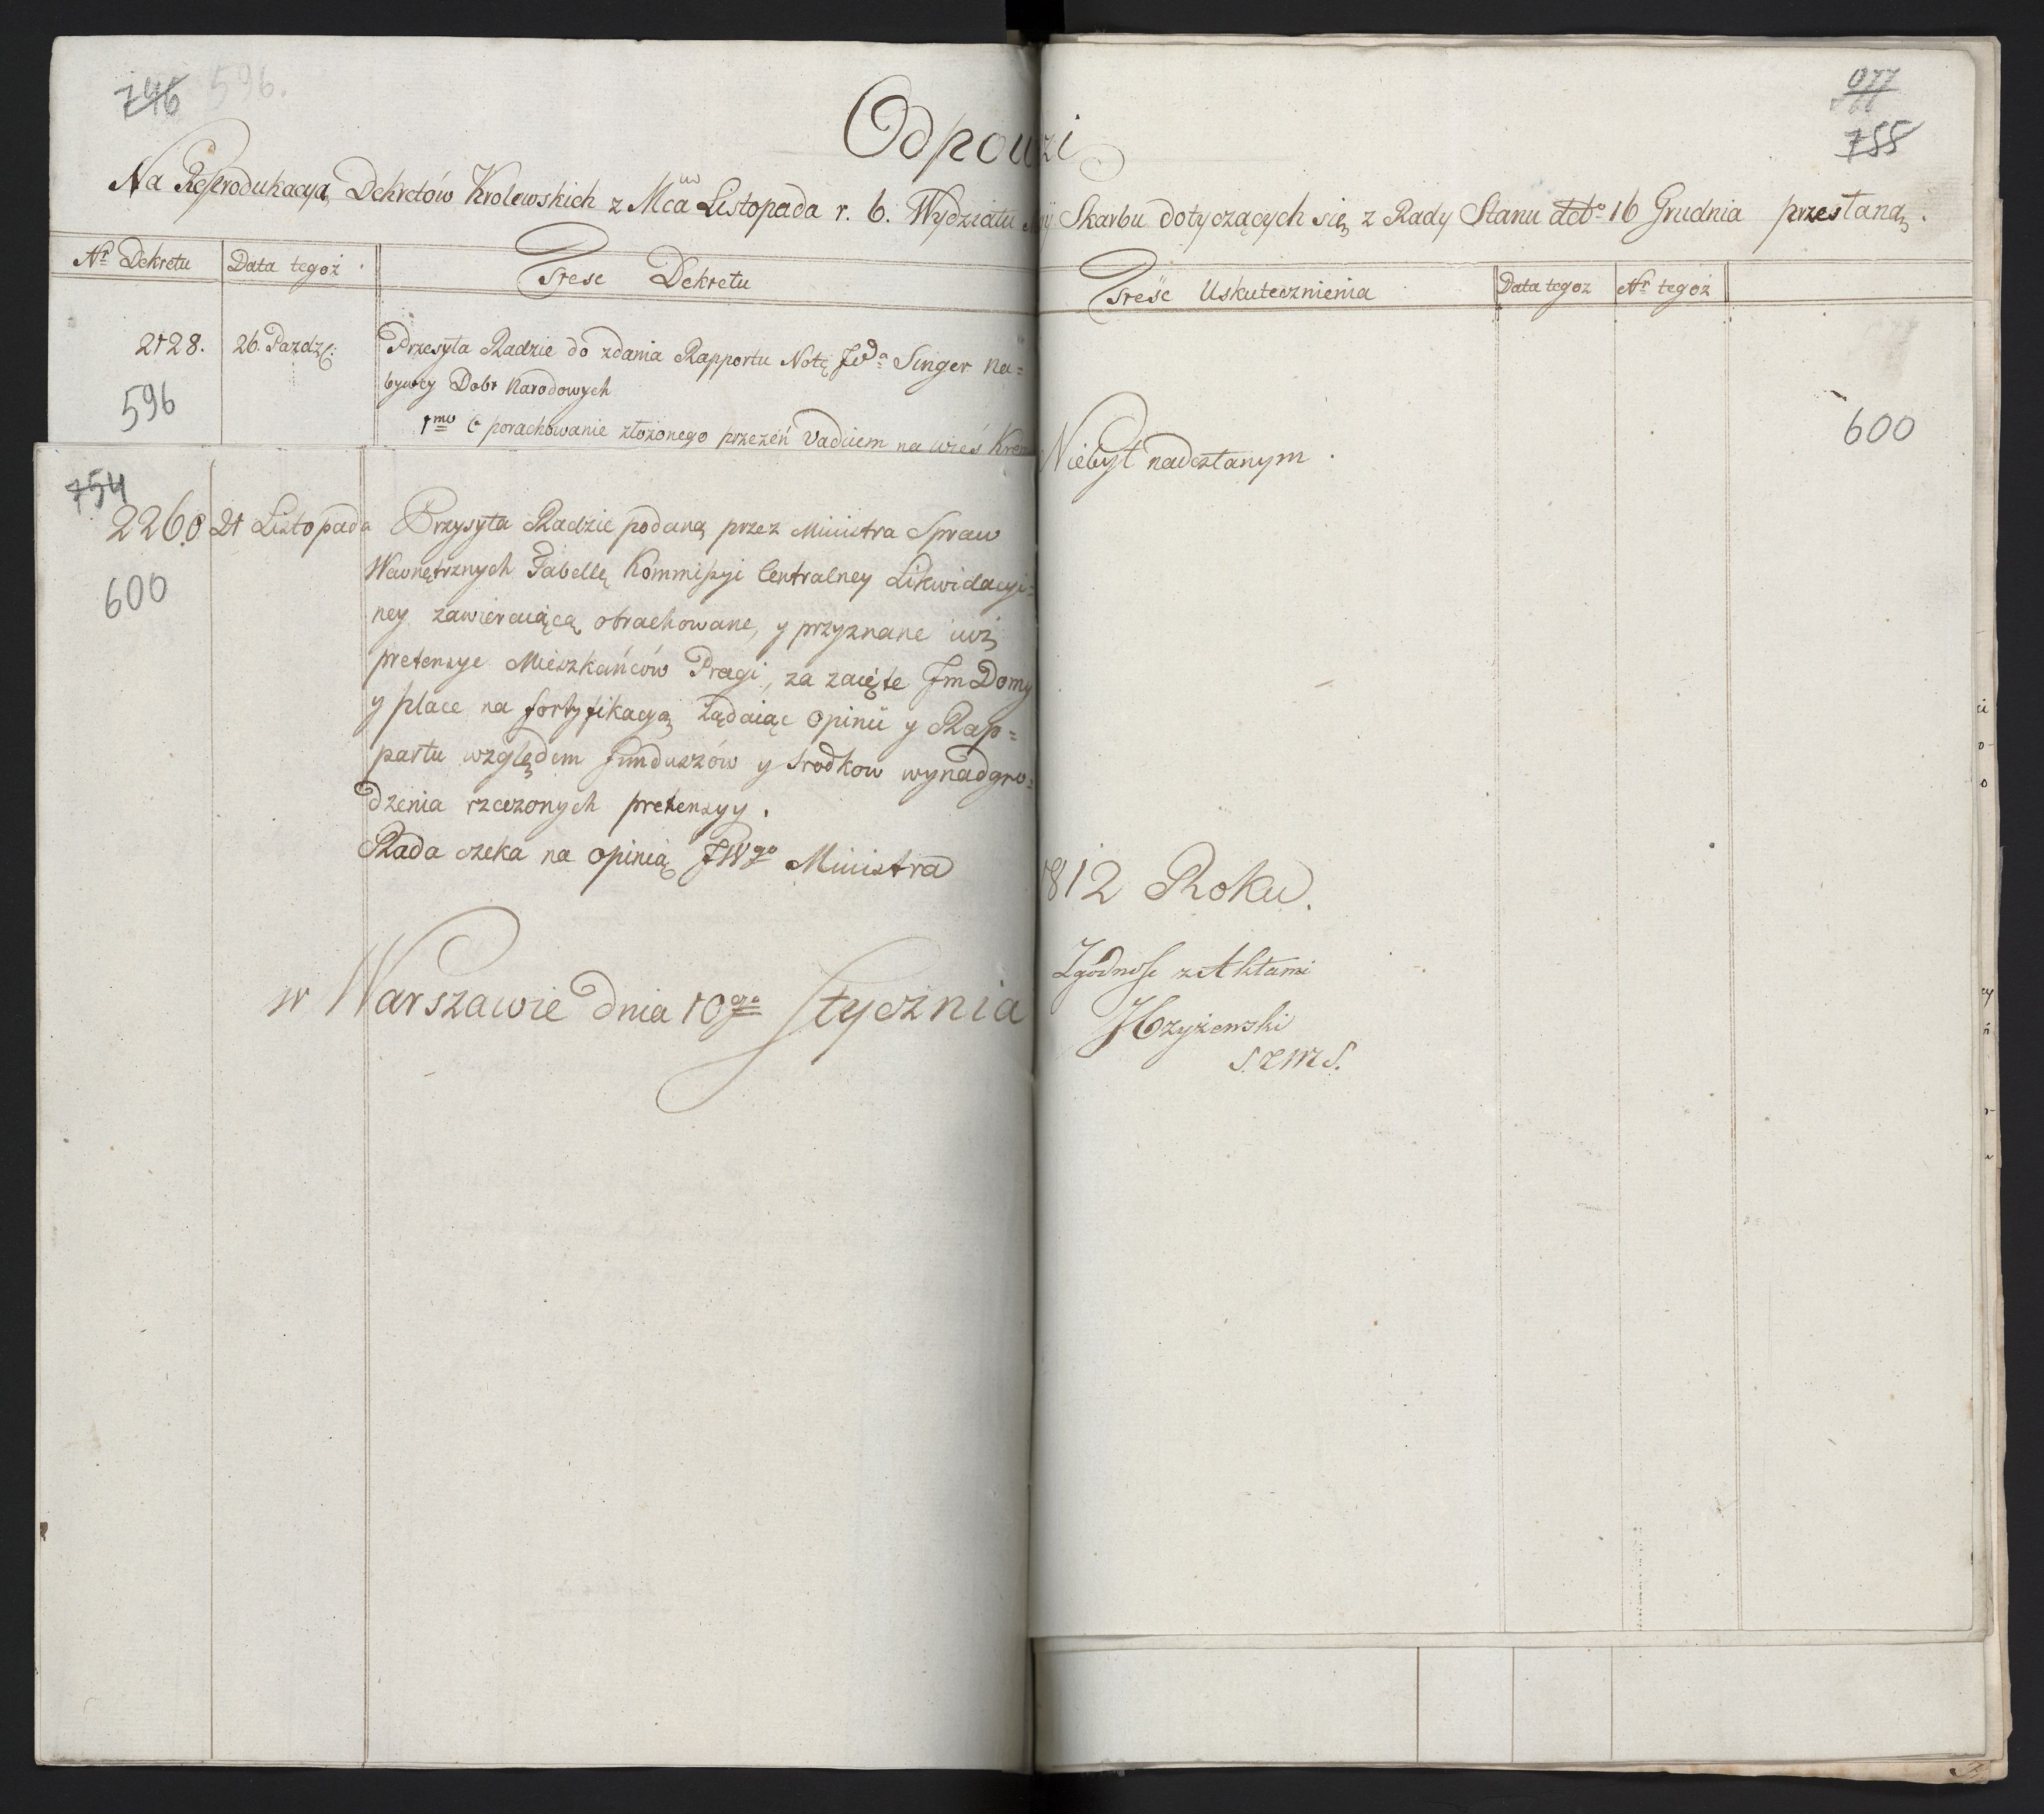 746 596.
977
755
Odpow zi
Na Reprodukacyą Dekretów Krolewskich z Mca Listopada r. b. Wydziału Skarbu dotyczących się z Rady Stanu dtto 16 Grudnia przesłaną.
Nr Dekretu Data tegoż Tresc Dekretu Treść Uskutecznienia Data tegoz Nr tegoż
2128. 26. Pazdz: Przesyła Radzie do zdania Rapportu Notę Jda Singer na=
bywcy Dobr Narodowych
596
1mo o porachowanie złożonego przezeń Vadiiem na wieś
600
Niebył nadesłanym.
754
2260 21 Listopada Przysyła Radzie podaną przez Ministra Spraw
Wewnętrznych Tabellę Kommissyi Centralney Likwidacyi=
600
ney zawieraiącą obrachowane, y przyznane iuż
pretensye Mieszkańców Pragi, za zaięte Im Domy
y place na fortyfikacyą żądaiąc opinii y Rap=
partu względem funduszów y srodkow wynadgro=
dzenia rzeczonych pretensyy.
Rada czeka na opinią JWgo Ministra
w Warszawie dnia 10go Stycznia 1812 Roku.
Zgodnosc z Aktami
S.Z.M.S.